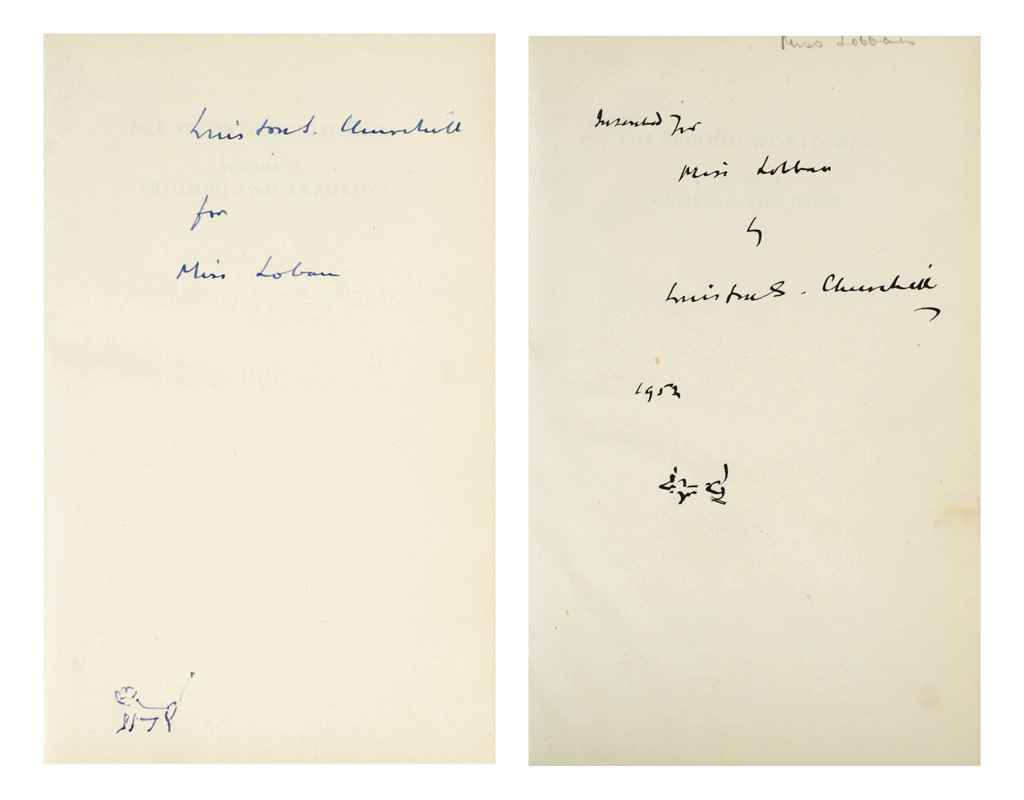 Winston S. Churchill
for
Miss Loban
Miss Lobban
Inscribed for
Miss Lobban
by
Winston S. Churchill
1952